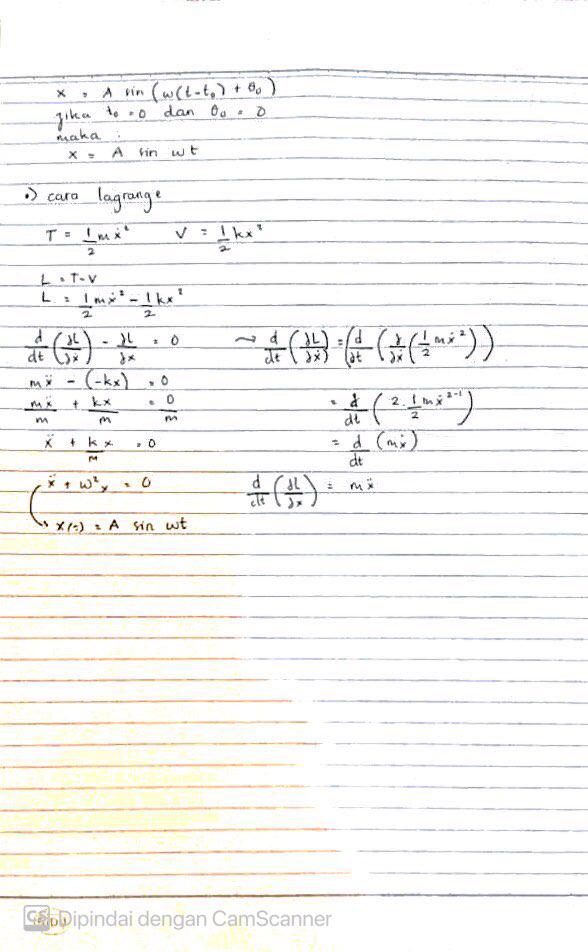 x = A sin (ω(t-t₀) + θ₀)
jika t₀ = 0 dan θ₀ = 0
maka :
x = A sin ωt
•) cara lagrange
T = 1/2 mẋ² V = 1/2 kx²
L = T-V
L = 1/2 mẋ² - 1/2 kx²
d/dt (∂L/∂ẋ) - ∂L/∂x = 0 → d/dt (∂L/∂ẋ) = (d/dt (∂/∂ẋ (1/2 mẋ²))
mẍ - (-kx) = 0
mẍ/m + kx/m = 0/m = d/dt (2. 1/2 mẋ²⁻¹)
ẍ + k/m x = 0 = d/dt (mẋ)
ẍ + ω²x = 0 d/dt (∂L/∂ẋ) = mẍ
x(t) = A sin ωt
CS Dipindai dengan CamScanner